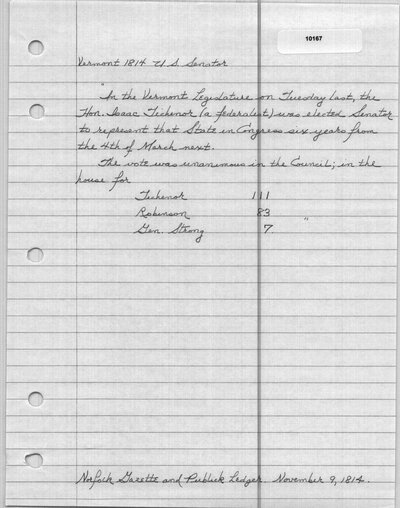 10167
Vermont 1814 U S. Senator
"In the Vermont Legislature on Tuesday last, the
Hon. Isaac Tichenor (a federalist) was elected Senator
to represent that State in Congress six years from
the 4th of March next.
The vote was unanimous in the Council; in the
house for
Tichenor 111
Robinson 83
Gen. Strong 7 "
Norfolk Gazette and Publick Ledger. November 9, 1814.